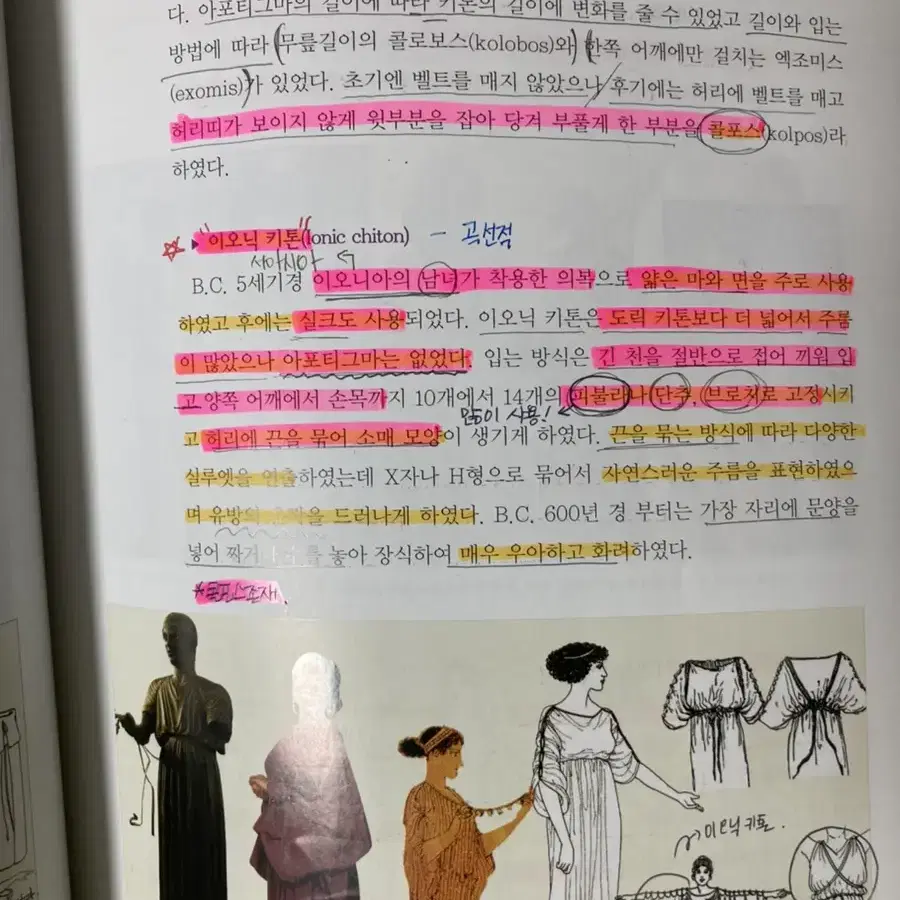 다. 아포티그마의 길이에 따라 키톤의 길이에 변화를 줄 수 있었고 길이와 입는
방법에 따라 무릎길이의 콜로보스(kolobos)와 한쪽 어깨에만 걸치는 엑조미스
(exomis)가 있었다. 초기엔 벨트를 매지 않았으나 후기에는 허리에 벨트를 매고
허리띠가 보이지 않게 윗부분을 잡아 당겨 부풀게 한 부분을 콜포스(kolpos)라
하였다.
"이오닉 키톤"(Ionic chiton) - 곡선적
B.C. 5세기경 이오니아의 남녀가 착용한 의복으로 얇은 마와 면을 주로 사용
하였고 후에는 실크도 사용되었다. 이오닉 키톤은 도릭 키톤보다 더 넓어서 주름
이 많았으나 아포티그마는 없었다. 입는 방식은 긴 천을 절반으로 접어 끼워 입
고 양쪽 어깨에서 손목까지 10개에서 14개의 피불라나 단추, 브로치로 고정시키
많이 사용!
고 허리에 끈을 묶어 소매 모양이 생기게 하였다. 끈을 묶는 방식에 따라 다양한
실루엣을 연출하였는데 X자나 H형으로 묶어서 자연스러운 주름을 표현하였으
며 유방의 드러나게 하였다. B.C. 600년 경 부터는 가장 자리에 문양을
넣어 짜거나 놓아 장식하여 매우 우아하고 화려하였다.
이오닉 키톤.